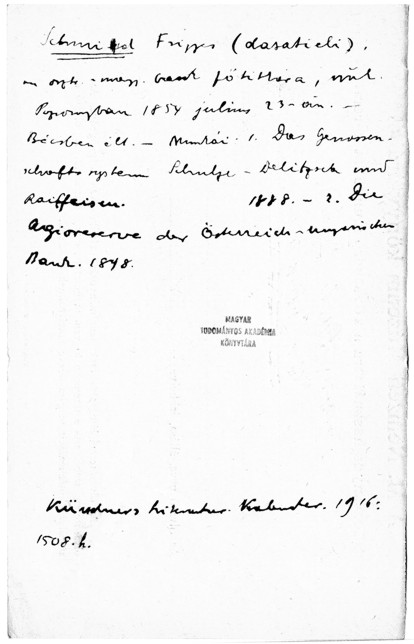 Schmied Frigyes (dasatieli),
az osztr.-magy. bank főtitkára, szül.
Pozsonyban 1854 július 23-án. –
Bécsben élt. – Munkái: 1. Das Genossen-
schaftssystem Schulze-Delitzsch und
Raiffeisen. 1888. – 2. Die
Agioreserve der Österreich-ungarischen
Bank. 1898.
MAGYAR
TUDOMÁNYOS AKADÉMIA
KÖNYVTÁRA
Kürschners Literatur-Kalender. 1916:
1508. h.